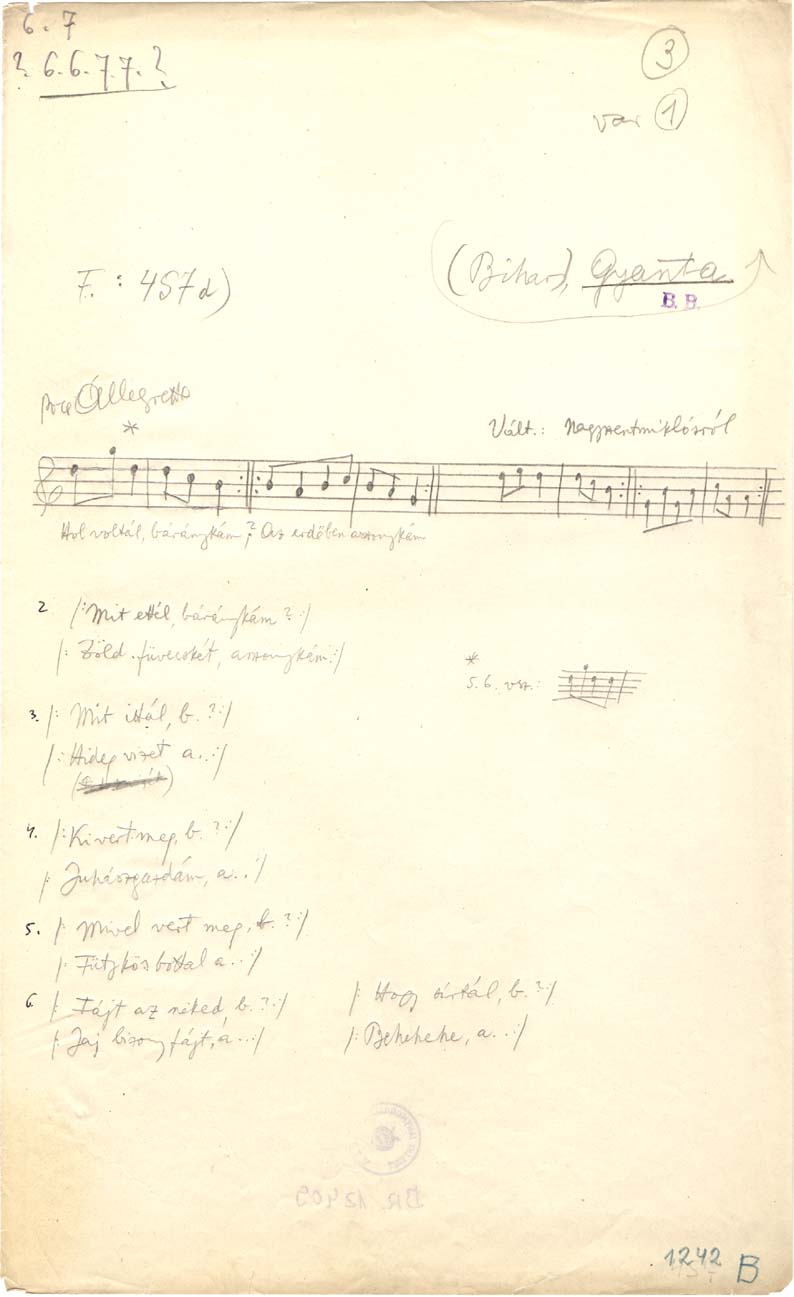 6. 7
? 6.6.7.7. ?
3
var 1
F.: 457d)
(Bihar), Gyanta
B. B.
poco Allegretto
*
Vált.: Nagyszentmiklósról
Hol voltál, báránykám? Az erdőben asszonykám
2 /: Mit ettél, báránykám? :/
/: Zöld füvecskét, asszonykám :/
*
5. 6. vsz.:
3. /: Mit ittál, b. ? :/
/: Hideg vizet a..:/
4. /: Ki vert meg, b. ? :/
/: Juhászgazdám, a..:/
5. /: Mivel vert meg, b. ? :/
/: Fütykös bottal a..:/
6. /: Fájt az néked, b. ? :/
/: Jaj bizony fájt, a...:/
/: Hogy sírtál, b. ? :/
/: Behehehe, a...:/
BR. 12409
1242 B